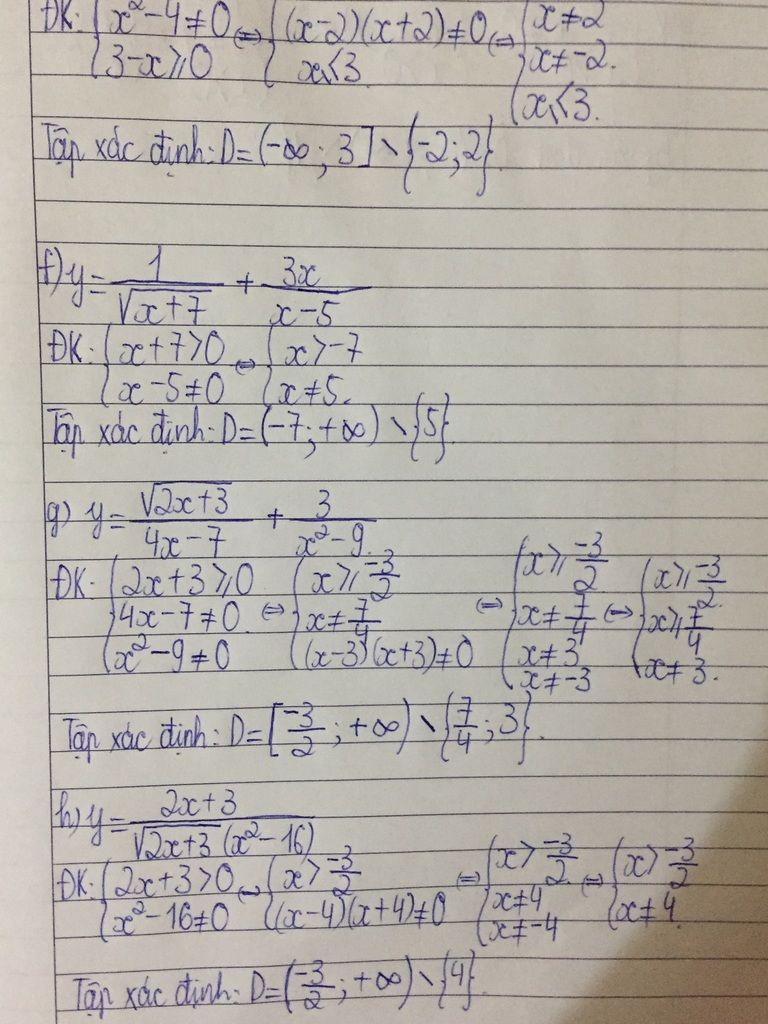 ĐK: { x² - 4 ≠ 0 ; 3 - x ⩾ 0 ⇔ { (x-2)(x+2) ≠ 0 ; x ⩽ 3. ⇔ { x ≠ 2 ; x ≠ -2. ; x ⩽ 3.
Tập xác định: D = (-∞ ; 3] \ {-2 ; 2}.
f) y = 1/√(x+7) + 3x/(x-5)
ĐK: { x+7 > 0 ; x-5 ≠ 0 ⇔ { x > -7 ; x ≠ 5.
Tập xác định: D = (-7 ; +∞) \ {5}.
g) y = √(2x+3)/(4x-7) + 3/(x²-9).
ĐK: { 2x+3 ⩾ 0 ; 4x-7 ≠ 0. ; x²-9 ≠ 0 ⇔ { x ⩾ -3/2 ; x ≠ 7/4 ; (x-3)(x+3) ≠ 0 ⇔ { x ⩾ -3/2 ; x ≠ 7/4 ; x ≠ 3 ; x ≠ -3 ⇔ { x ⩾ -3/2. ; x ⩾ 7/4 ; x ≠ 3.
Tập xác định: D = [-3/2 ; +∞) \ {7/4 ; 3}.
h) y = (2x+3)/(√(2x+3) (x²-16))
ĐK: { 2x+3 > 0 ; x²-16 ≠ 0 ⇔ { x > -3/2 ; (x-4)(x+4) ≠ 0 ⇔ { x > -3/2. ; x ≠ 4 ; x ≠ -4 ⇔ { x > -3/2 ; x ≠ 4.
Tập xác định: D = (-3/2 ; +∞) \ {4}.